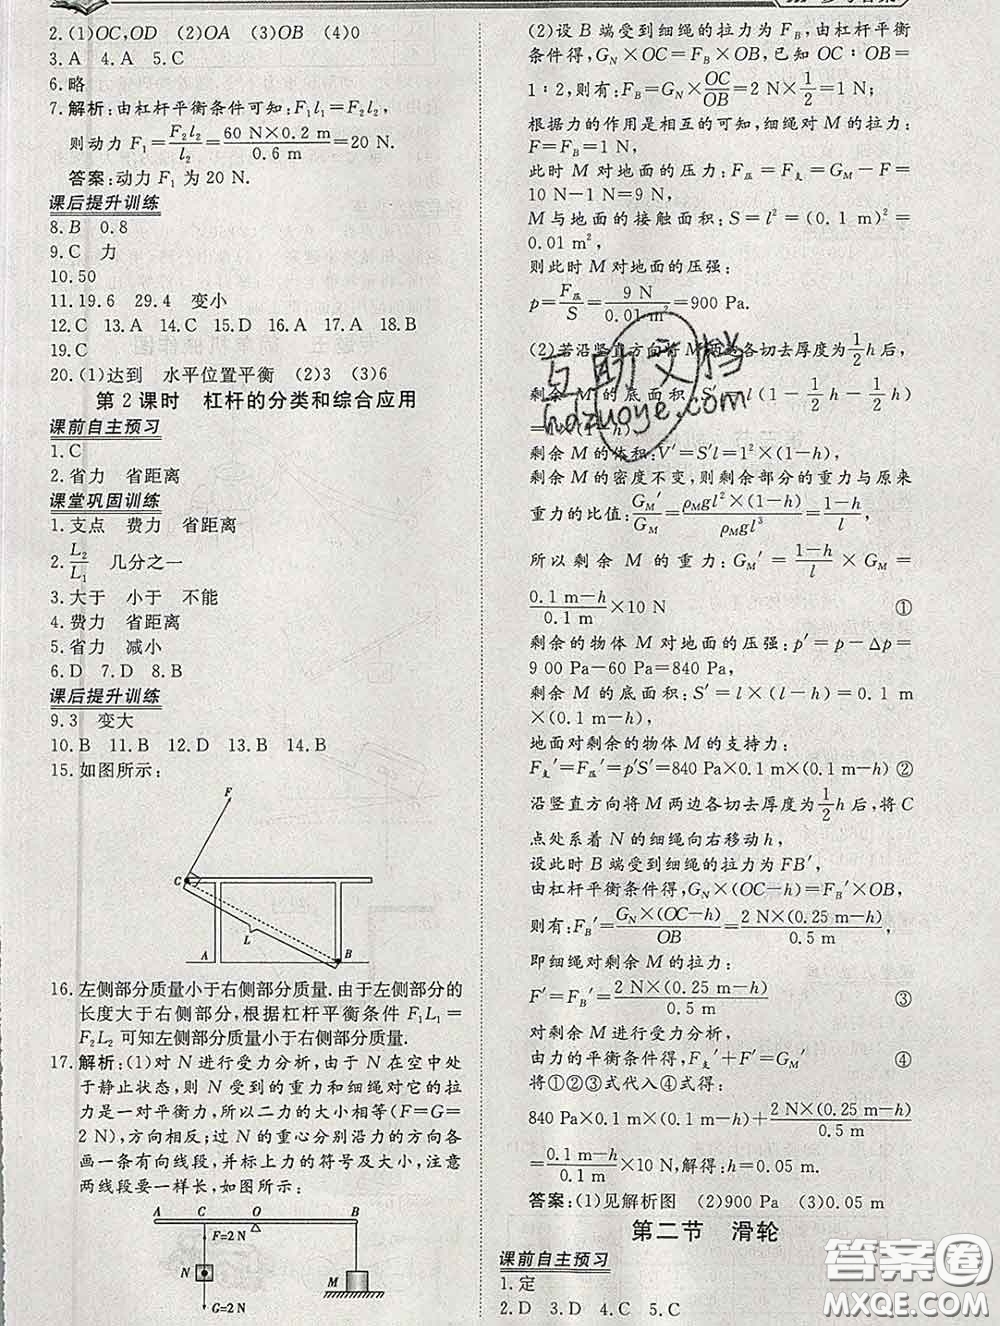 参考答案
2.(1)OC,OD (2)OA (3)OB (4)0
3.A 4.A 5.C
6.略
7.解析:由杠杆平衡条件可知:F₁l₁=F₂l₂,
则动力 F₁=F₂l₂/l₂=60 N×0.2 m/0.6 m=20 N.
答案:动力 F₁ 为 20 N.
课后提升训练
8.B 0.8
9.C 力
10.50
11.19.6 29.4 变小
12.C 13.A 14.C 15.D 16.A 17.A 18.B
19.C
20.(1)达到 水平位置平衡 (2)3 (3)6
第 2 课时 杠杆的分类和综合应用
课前自主预习
1.C
2.省力 省距离
课堂巩固训练
1.支点 费力 省距离
2.L₂/L₁ 几分之一
3.大于 小于 不能
4.费力 省距离
5.省力 减小
6.D 7.D 8.B
课后提升训练
9.3 变大
10.B 11.B 12.D 13.B 14.B
15.如图所示:
F
C
L
A
B
16.左侧部分质量小于右侧部分质量.由于左侧部分的
长度大于右侧部分,根据杠杆平衡条件 F₁L₁=
F₂L₂ 可知左侧部分质量小于右侧部分质量.
17.解析:(1)对 N 进行受力分析,由于 N 在空中处
于静止状态,则 N 受到的重力和细绳对它的拉
力是一对平衡力,所以二力的大小相等(F=G=
2 N),方向相反;过 N 的重心分别沿力的方向各
画一条有向线段,并标上力的符号及大小,注意
两线段要一样长,如图所示:
A C O B
F=2 N
N
M
G=2 N
(2)设 B 端受到细绳的拉力为 F_B,由杠杆平衡
条件得,G_N×OC=F_B×OB,已知 OC∶OB=
1∶2,则有:F_B=G_N×OC/OB=2 N×1/2=1 N;
根据力的作用是相互的可知,细绳对 M 的拉力:
F=F_B=1 N,
此时 M 对地面的压力:F压=F支=G_M−F=
10 N−1 N=9 N,
M 与地面的接触面积:S=l²=(0.1 m)²=
0.01 m²,
则此时 M 对地面的压强:
p=F压/S=9 N/0.01 m²=900 Pa.
(2)若沿竖直方向将 M 两边各切去厚度为1/2h后,
剩余 M 的底面积:S′=l(l−1/2h−1/2h)
=l×(l−h)
剩余 M 的体积:V′=S′l=l²×(l−h)
剩余 M 的密度不变,则剩余部分的重力与原来
重力的比值:G_M′/G_M=ρ_M gl²×(l−h)/ρ_M gl³=l−h/l,
所以剩余 M 的重力:G_M′=l−h/l×G_M=
0.1 m−h/0.1 m×10 N ①
剩余的物体 M 对地面的压强:p′=p−Δp=
900 Pa−60 Pa=840 Pa,
剩余 M 的底面积:S′=l×(l−h)=0.1 m
×(0.1 m−h),
地面对剩余的物体 M 的支持力:
F支′=F压′=p′S′=840 Pa×0.1 m×(0.1 m−h) ②
沿竖直方向将 M 两边各切去厚度为1/2h后,将 C
点处系着 N 的细绳向右移动 h,
设此时 B 端受到细绳的拉力为 FB′,
由杠杆平衡条件得,G_N×(OC−h)=F_B′×OB,
则有:F_B′=G_N×(OC−h)/OB=2 N×(0.25 m−h)/0.5 m,
即细绳对剩余 M 的拉力:
F′=F_B′=2 N×(0.25 m−h)/0.5 m ③
对剩余 M 进行受力分析,
由力的平衡条件得,F支′+F′=G_M′ ④
将①②③式代入④式得:
840 Pa×0.1 m×(0.1 m−h)+2 N×(0.25 m−h)/0.5 m
=0.1 m−h/0.1 m×10 N,解得:h=0.05 m.
答案:(1)见解析图 (2)900 Pa (3)0.05 m
第二节 滑轮
课前自主预习
1.定
2.D 3.D 4.C 5.C
互助文档
hdzuoye.com
答案圈
MXQE.COM